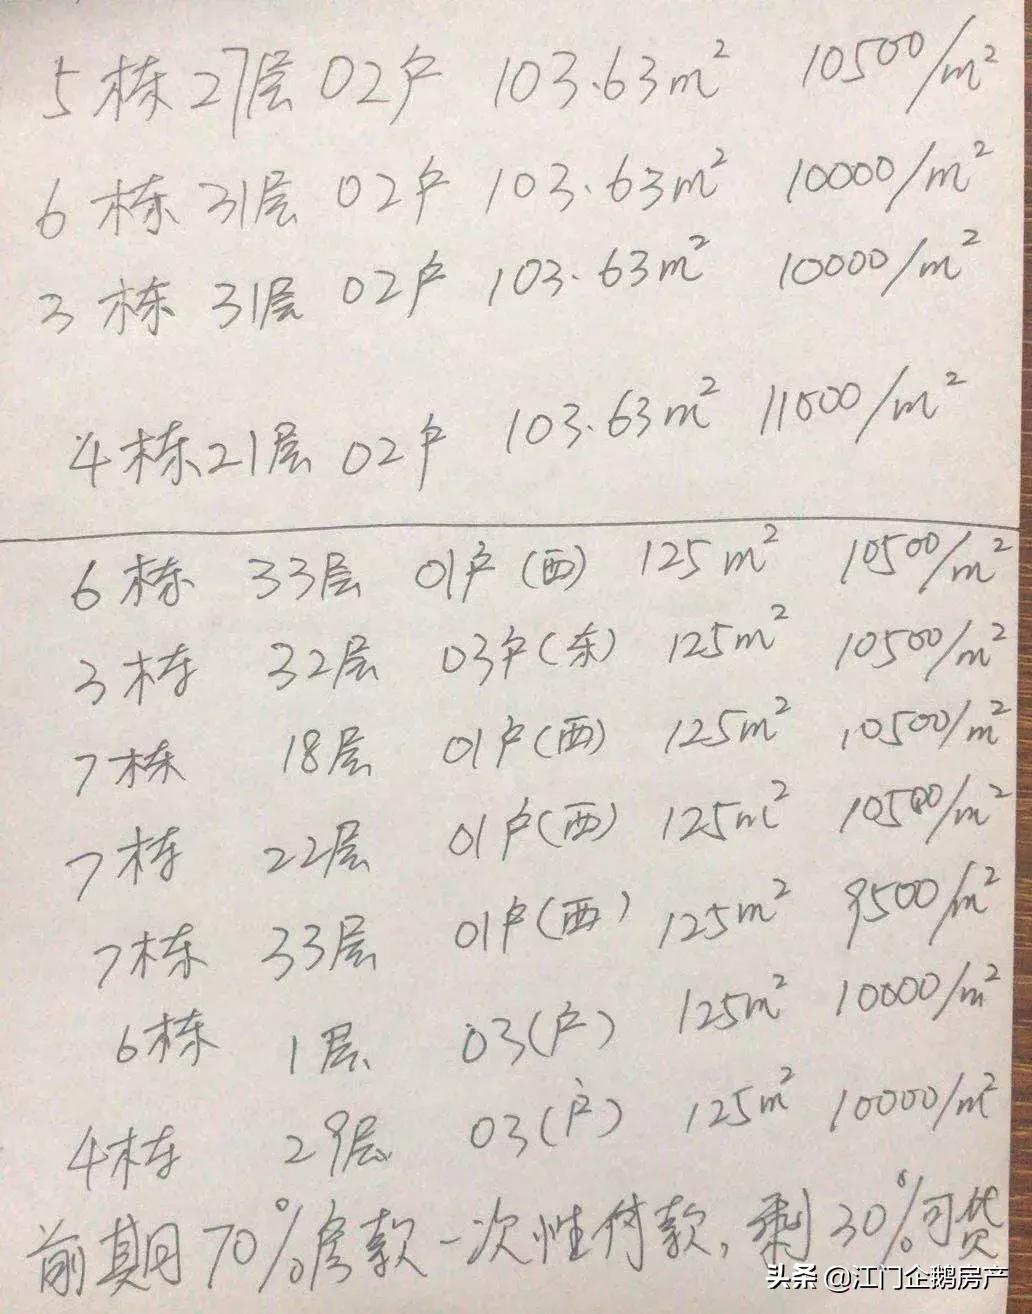 5栋27层02户 103.63m² 10500/m²
6栋 31层 02户 103.63m² 10000/m²
3栋 31层 02户 103.63m² 10000/m²
4栋21层 02户 103.63m² 11000/m²
6栋 33层 01户(西) 125m² 10500/m²
3栋 32层 03户(东) 125m² 10500/m²
7栋 18层 01户(西) 125m² 10500/m²
7栋 22层 01户(西) 125m² 10500/m²
7栋 33层 01户(西) 125m² 9500/m²
6栋 1层 03(户) 125m² 10000/m²
4栋 29层 03(户) 125m² 10000/m²
前期70%房款一次性付款,剩30%可贷
头条 @江门企鹅房产